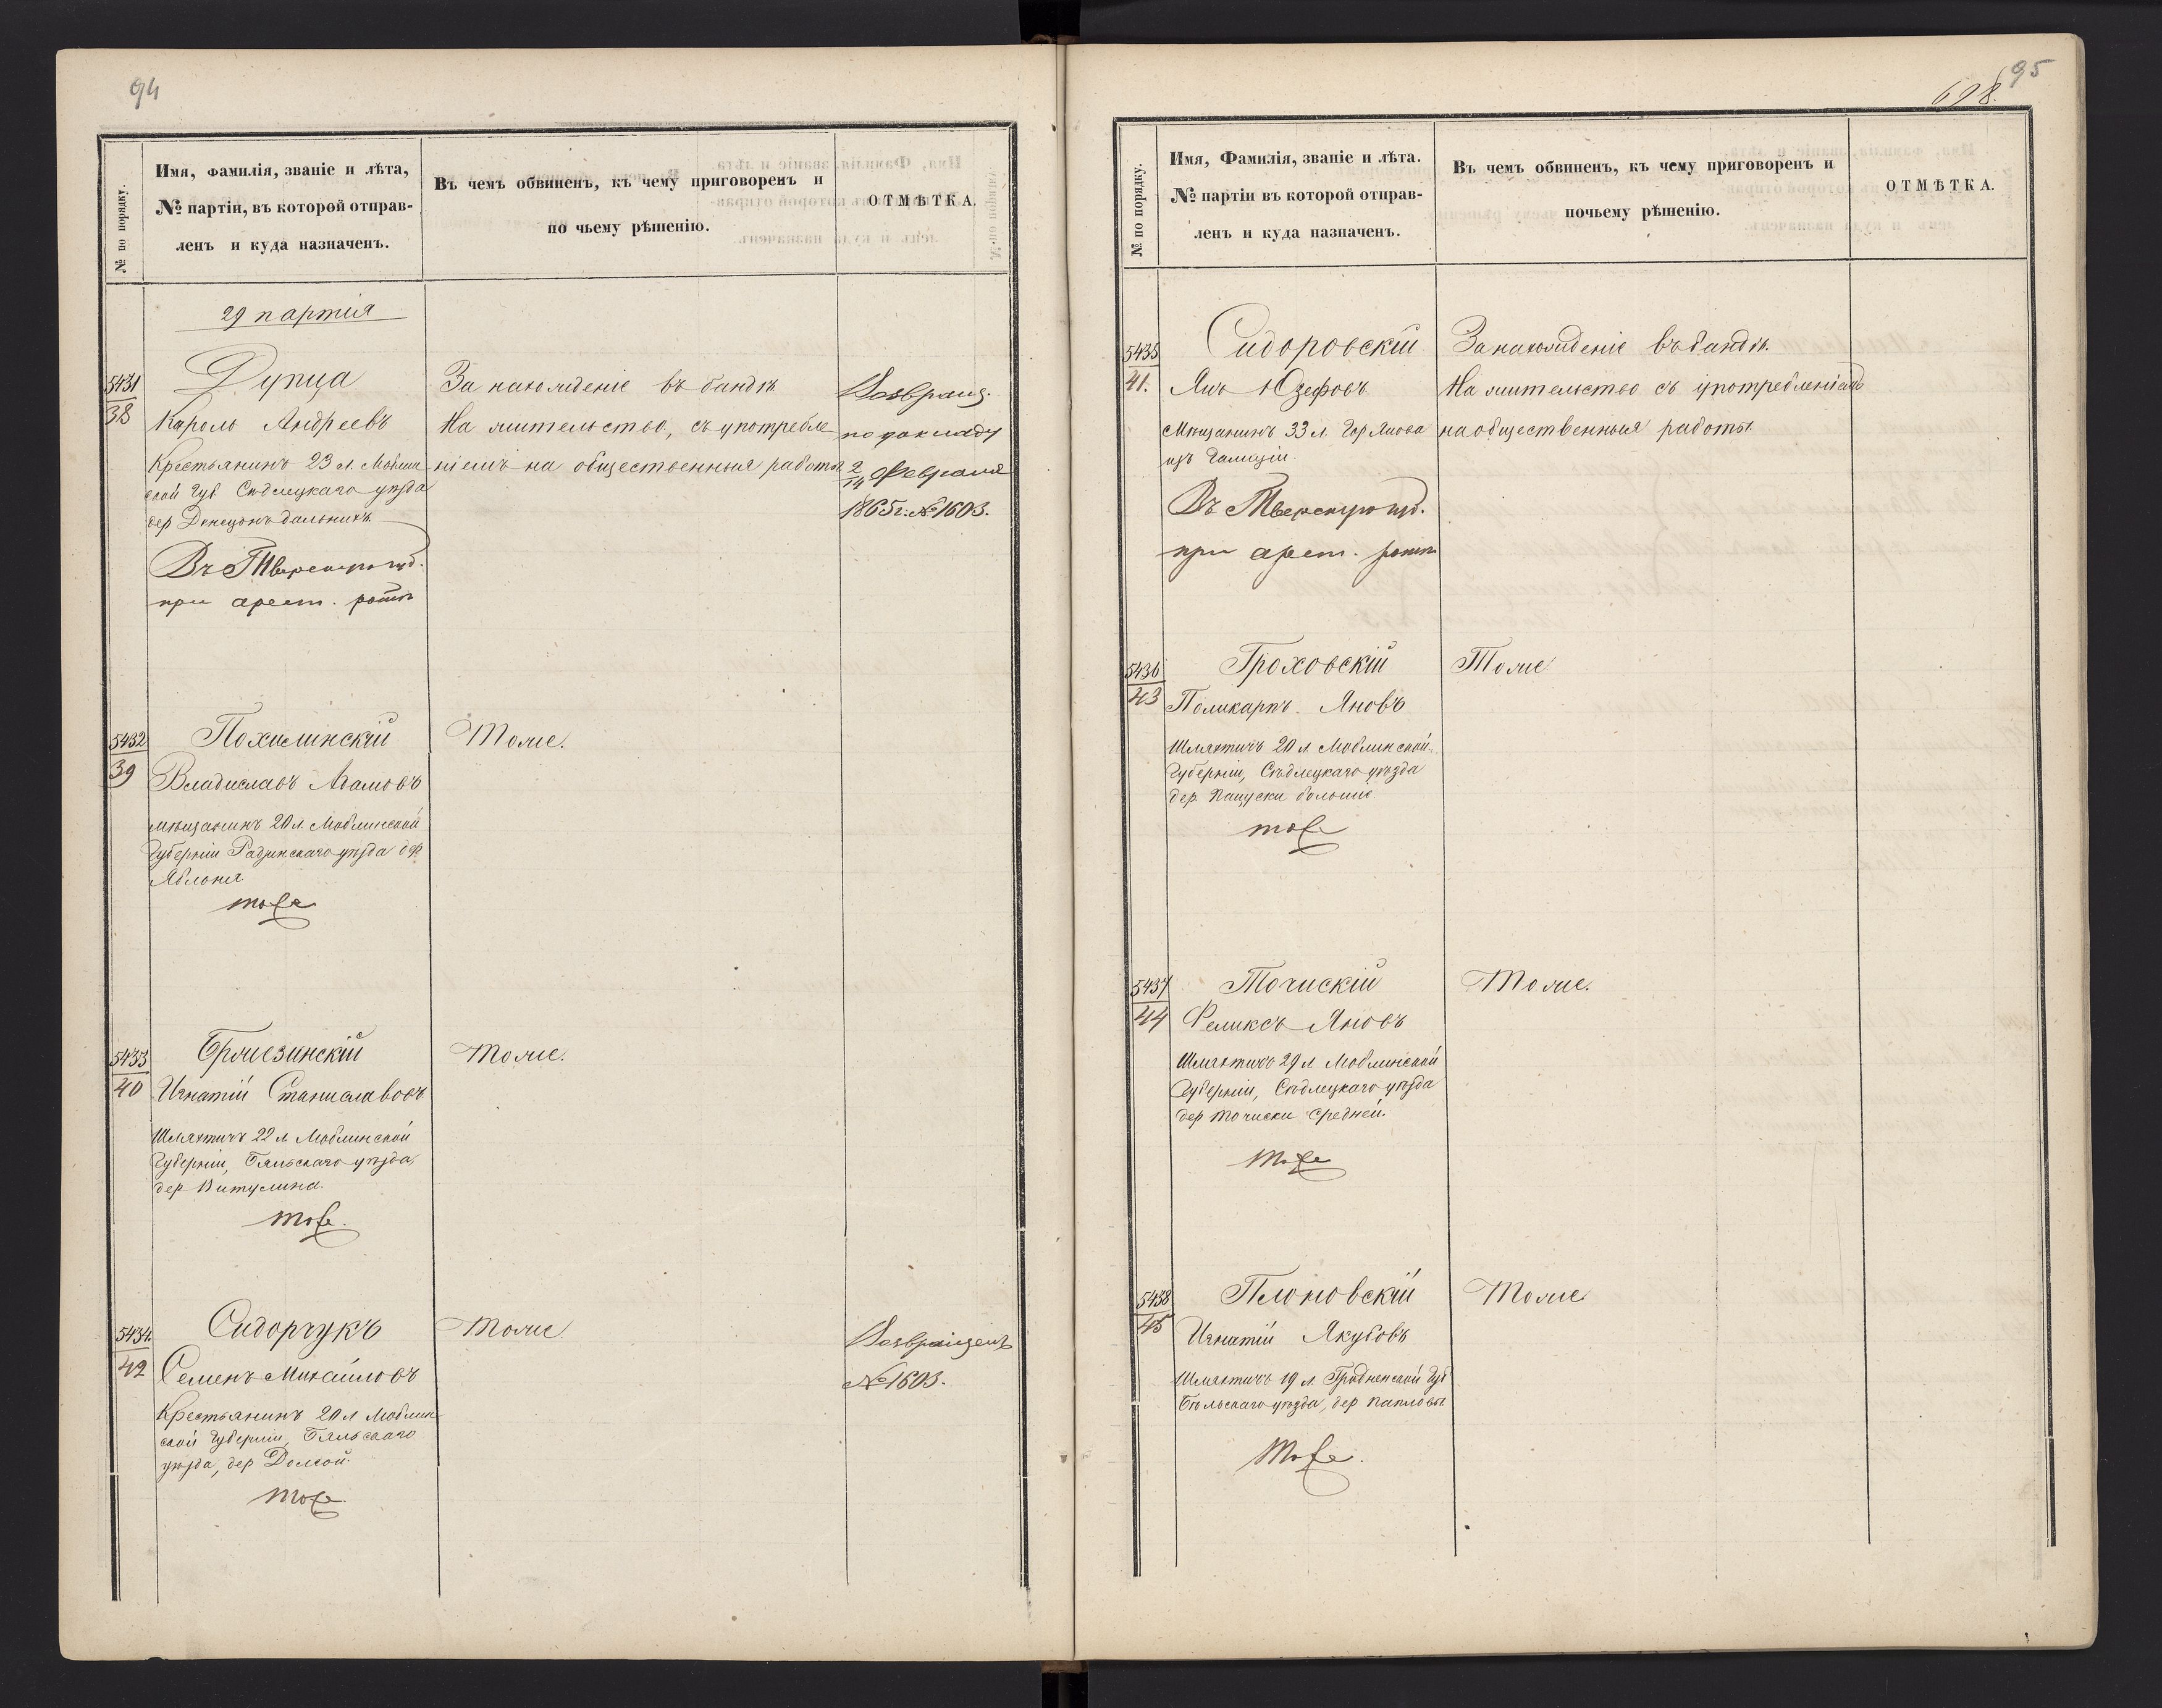 94
№ по порядку.
Имя, Фамилія, званіе и лѣта,
№ партіи, въ которой отправ-
ленъ и куда назначенъ.
Въ чемъ обвиненъ, къ чему приговоренъ и
по чьему рѣшенію.
ОТМѢТКА.
29 партія
5431
38
Дупца
Кароль Андреевъ
Крестьянинъ 23 л. Люблин
ской Губ Сѣдлецкаго уѣзда
дер
Въ Тверскую губ.
при арест. ротѣ
За нахожденіе въ бандѣ
На жительство, съ употребле
ніемъ на общественныя работы
Возвращ.
по докладу
2/14 Февраля
1865 г. № 1603.
5432
39
Похилинскій
Владиславъ Адамовъ
мѣщанинъ 20 л. Люблинской
Губерніи Радинскаго уѣзда
Яблоня
тоже
Тоже.
5433
40
Бржезинскій
Игнатій Станиславовъ
Шляхтичъ 22 л. Люблинской
Губерніи, Бяльскаго уѣзда,
дер Витулина.
тоже.
Тоже.
5434.
42
Сидорчукъ
Семенъ Михайловъ
Крестьянинъ 20 л Люблин
ской Губерніи, Бяльскаго
уѣзда, дер Долгой.
тоже
Тоже.
Возвращенъ
№ 1603.
95
698.
№ по порядку.
Имя, Фамилія, званіе и лѣта.
№ партіи въ которой отправ-
ленъ и куда назначенъ.
Въ чемъ обвиненъ, къ чему приговоренъ и
почьему рѣшенію.
ОТМѢТКА.
5435
41.
Сидоровскій
Янъ Юзефовъ
Мѣщанинъ 33 л. Гор Янова
изъ Галиціи.
Въ Тверскую губ.
при арест. ротѣ
За нахожденіе въ бандѣ.
На жительство съ употребленіемъ
на общественныя работы.
5436
43
Гроховскій
Поликарпъ Яновъ
Шляхтичъ 20 л Люблинской
Губерніи, Сѣдлецкаго уѣзда
дер. Пацуски большіе.
тоже
Тоже.
5437
44
Точискій
Феликсъ Яновъ
Шляхтичъ 29 л Люблинской
Губерніи, Сѣдлецкаго уѣзда
дер Точиски Средней.
Тоже
Тоже.
5438
45
Плоновскій
Игнатій Якубовъ
Шляхтичъ 19 л. Гродненской Губ
Бѣльскаго уѣзда, дер
Тоже.
Тоже